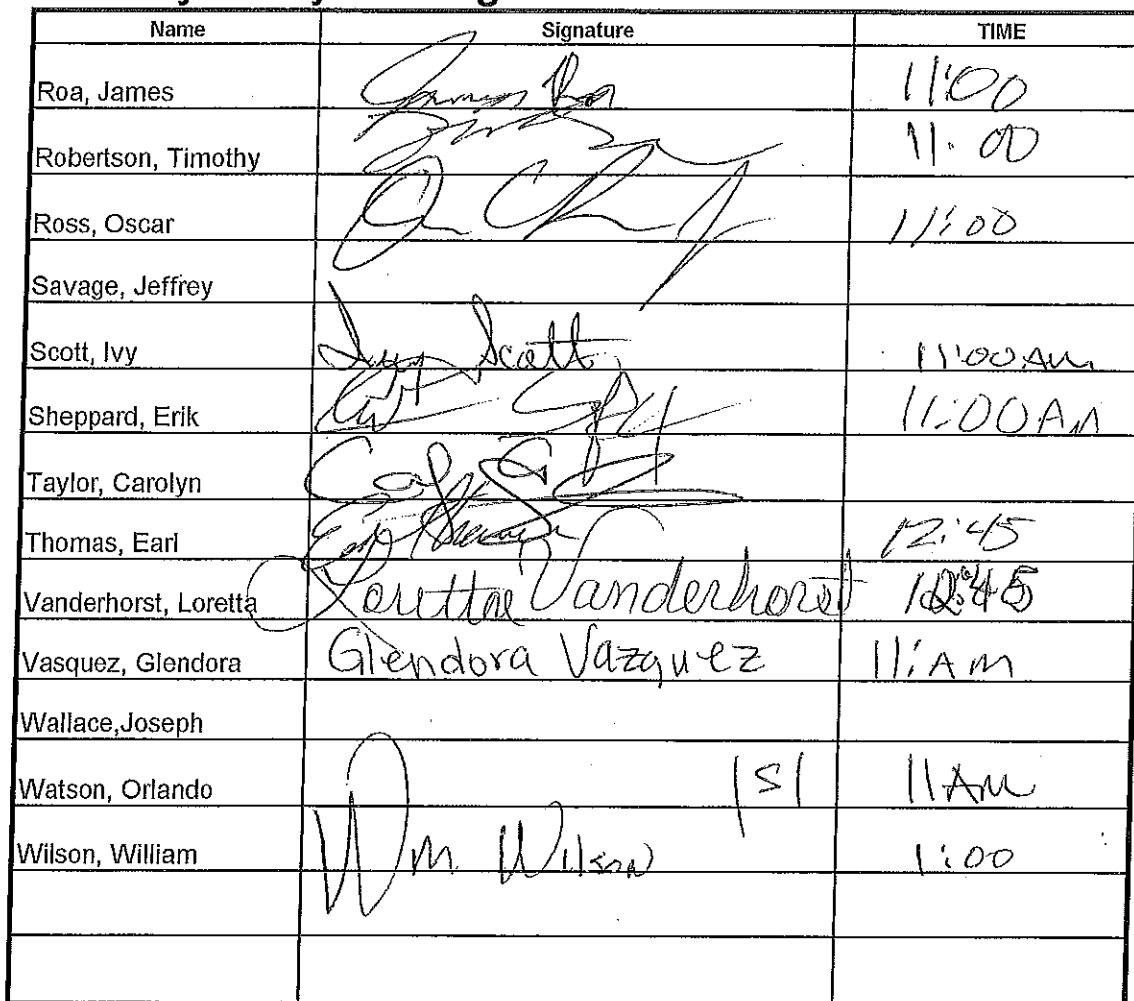 Name Signature TIME
Roa, James James Roa 11:00
Robertson, Timothy 11:00
Ross, Oscar 11:00
Savage, Jeffrey
Scott, Ivy Ivy Scott 11:00 AM
Sheppard, Erik 11:00 AM
Taylor, Carolyn
Thomas, Earl Earl Thomas 12:45
Vanderhorst, Loretta Loretta Vanderhorst 12:45
Vasquez, Glendora Glendora Vazquez 11:AM
Wallace,Joseph
Watson, Orlando |S| 11AM
Wilson, William Wm Wilson 1:00